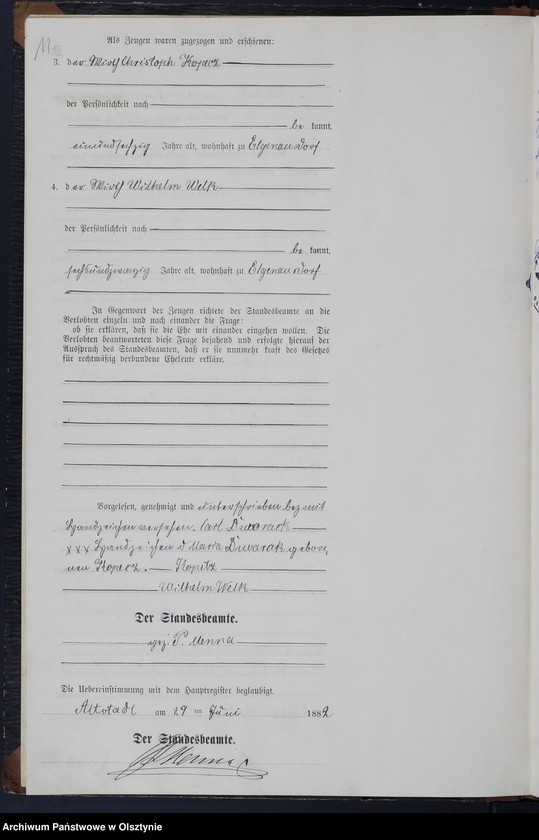 11
Als Zeugen waren zugezogen und erschienen:
3. der Wirth Christoph Kopacz
der Persönlichkeit nach
be kannt,
einundsechzig Jahre alt, wohnhaft zu Elgenau Dorf
4. der Wirth Wilhelm Welk
der Persönlichkeit nach
be kannt,
sechsundzwanzig Jahre alt, wohnhaft zu Elgenau Dorf
In Gegenwart der Zeugen richtete der Standesbeamte an die
Verlobten einzeln und nach einander die Frage:
ob sie erklären, daß sie die Ehe mit einander eingehen wollen. Die
Verlobten beantworteten diese Frage bejahend und erfolgte hierauf der
Ausspruch des Standesbeamten, daß er sie nunmehr kraft des Gesetzes
für rechtmäßig verbundene Eheleute erkläre.
Vorgelesen, genehmigt und unterschrieben bez mit
Handzeichen versehen. Carl Dwarack
xxx Handzeichen d Maria Dwarak gebor,
nen Kopacz. Kopetz
Wilhelm Welk
Der Standesbeamte.
gez. P. Menna
Die Uebereinstimmung mit dem Hauptregister beglaubigt.
Altstadt am 29 ten Juni 1882
Der Standesbeamte.
Menna
Archiwum Państwowe w Olsztynie